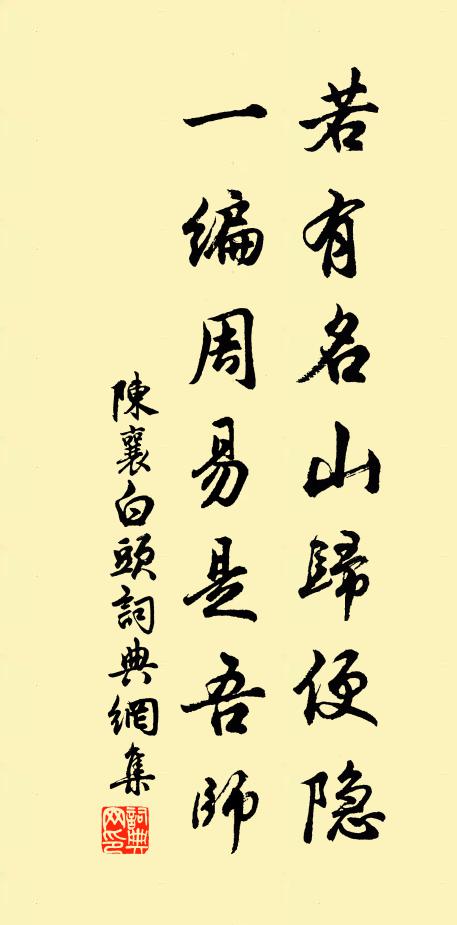 若有名山歸便隐
一编周易是吾师
陳襄白頭詞典網集
詞典网印